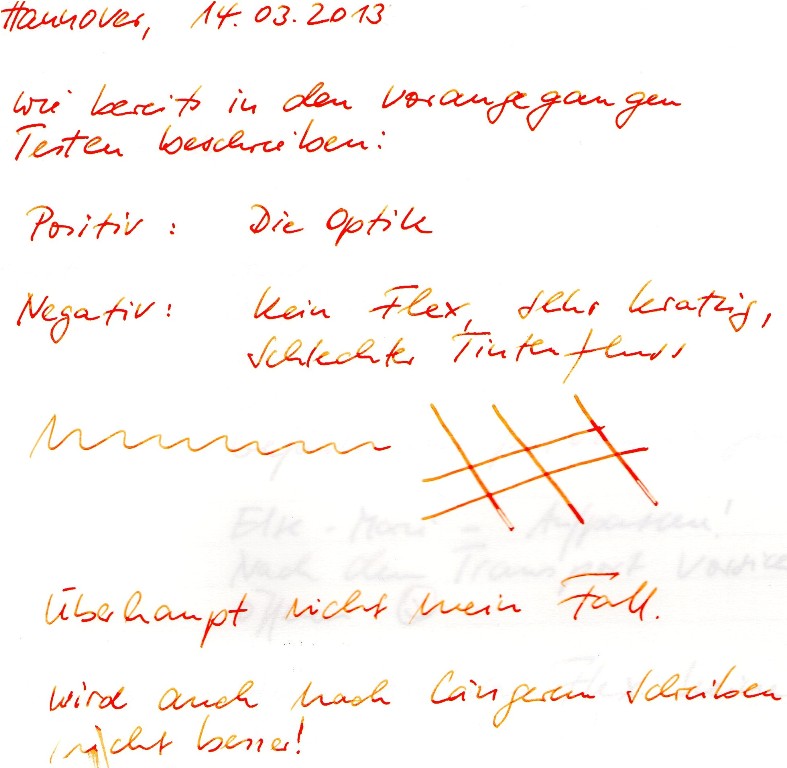 Hannover, 14.03.2013
Wie bereits in den vorangegangen
Testen beschrieben:
Positiv : Die Optik
Negativ : Kein Flex, sehr kratzig,
schlechter Tintenfluss
Überhaupt nicht mein Fall.
Wird auch nach längerem schreiben
nicht besser!